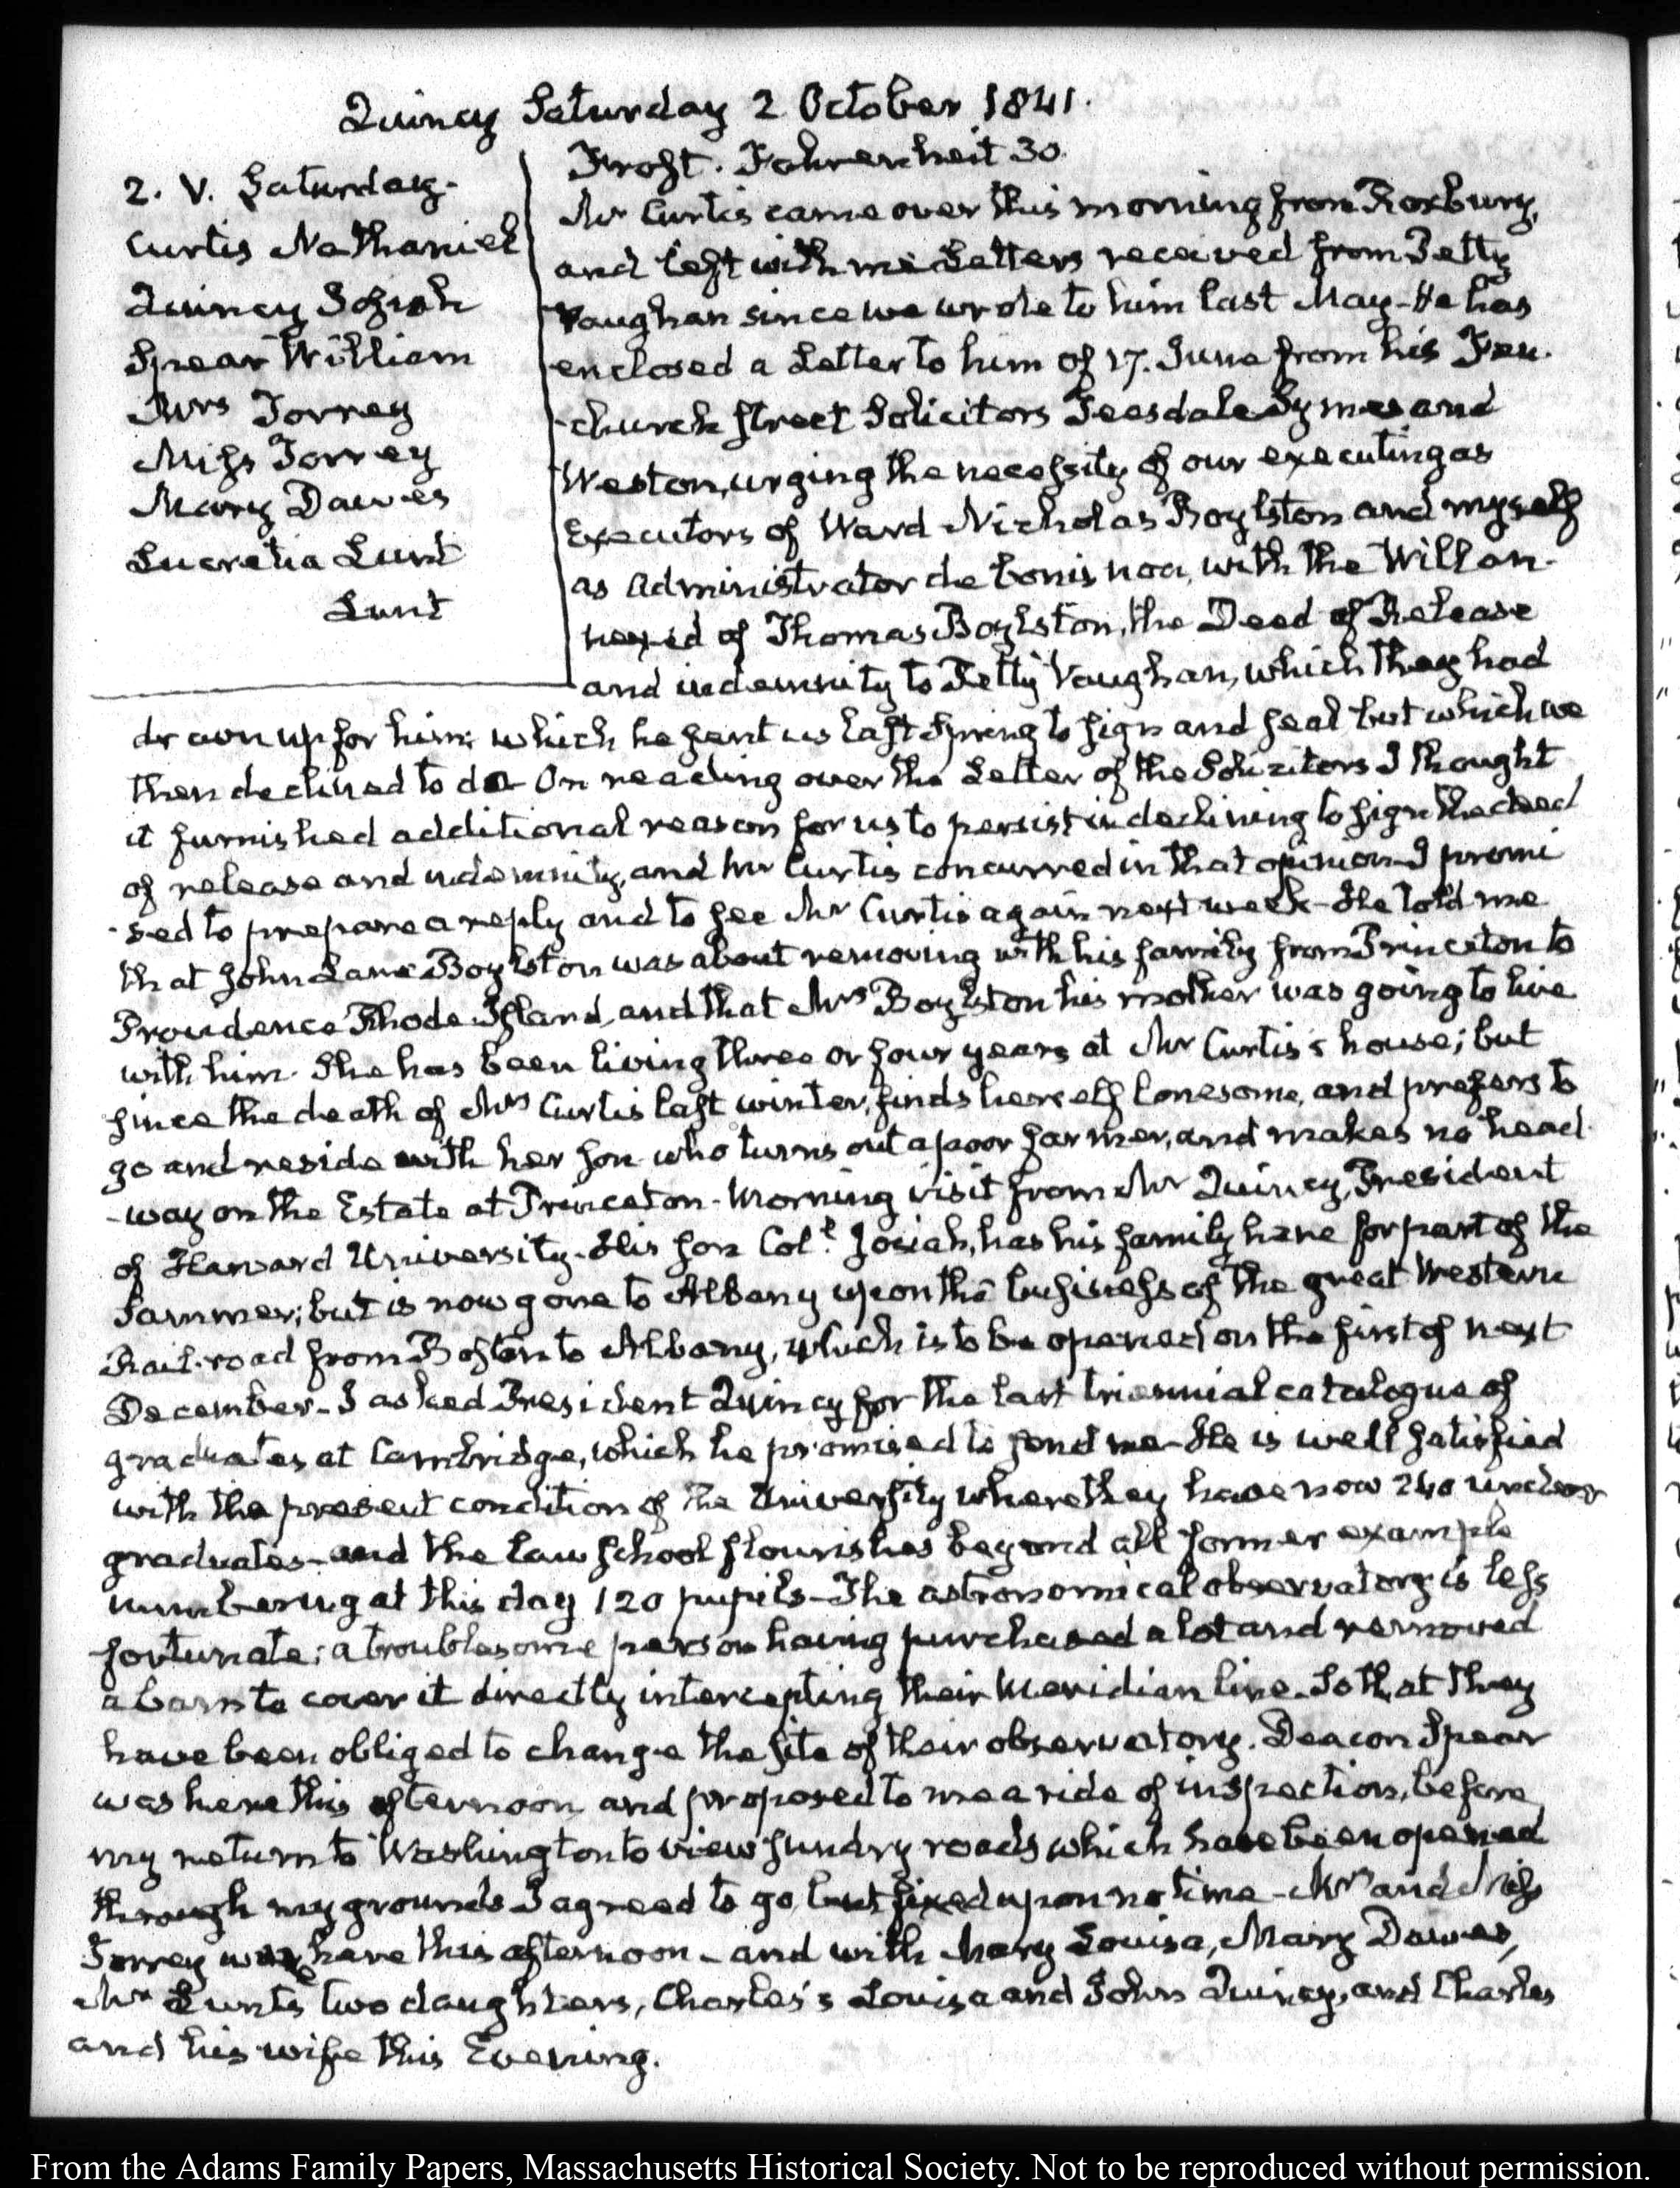 Quincy Saturday 2 October 1841.
2. V. Saturday.
Curtis Nathaniel
Quincy Josiah
Spear William
Mrs Torrey
Miss Torrey
Mary Dawes
Lucretia Lunt
Lunt
Frost. Fahrenheit 30.
Mr Curtis came over this morning from Roxbury,
and left with me Letters received from Petty
Vaughan since we wrote to him last May - He has
enclosed a Letter to him of 17. June from his Fen-
-church street Solicitors Teesdale Symes and
Weston, urging the necessity of our executing as
Executors of Ward Nicholas Boylston and myself
as Administrator de bonis non, with the Will an-
nexed of Thomas Boylston, the Deed of Release
and indemnity to Petty Vaughan, which they had
drawn up for him; which he sent us last Spring to sign and seal but which we
then declined to do - On reading over the Letter of the Solicitors I thought
it furnished additional reason for us to persist in declining to sign the deed
of release and indemnity, and Mr Curtis concurred in that opinion - I promi
-sed to prepare a reply and to see Mr Curtis again next week - He told me
that John Lane Boylston was about removing with his family from Princeton to
Providence Rhode Island, and that Mrs Boylston his mother was going to live
with him. She has been living three or four years at Mr Curtis's house; but
since the death of Mrs Curtis last winter, finds herself lonesome, and prefers to
go and reside with her son who turns out a poor farmer, and makes no head-
-way on the Estate at Princeton - Morning visit from Mr Quincy, President
of Harvard University - His son Col.l Josiah, has his family here for part of the
Summer; but is now gone to Albany upon the business of the great Western
Rail-road from Boston to Albany, which is to be opened on the first of next
December - I asked President Quincy for the last triennial catalogue of
graduates at Cambridge, which he promised to send me - He is well satisfied
with the present condition of the University where they have now 240 under
graduates - and the law school flourishes beyond all former example
numbering at this day 120 pupils - The astronomical observatory is less
fortunate; a troublesome person having purchased a lot and removed
a barn to cover it directly intercepting their Meridian line. So that they
have been obliged to change the site of their observatory. Deacon Spear
was here this afternoon and proposed to me a ride of inspection, before
my return to Washington to view sundry roads which have been opened
through my grounds I agreed to go but fixed upon no time - Mrs and Miss
Torrey were here this afternoon - and with Mary Louisa, Mary Dawes,
Mr Lunt's two daughters, Charles's Louisa and John Quincy, and Charles
and his wife this Evening.
From the Adams Family Papers, Massachusetts Historical Society. Not to be reproduced without permission.